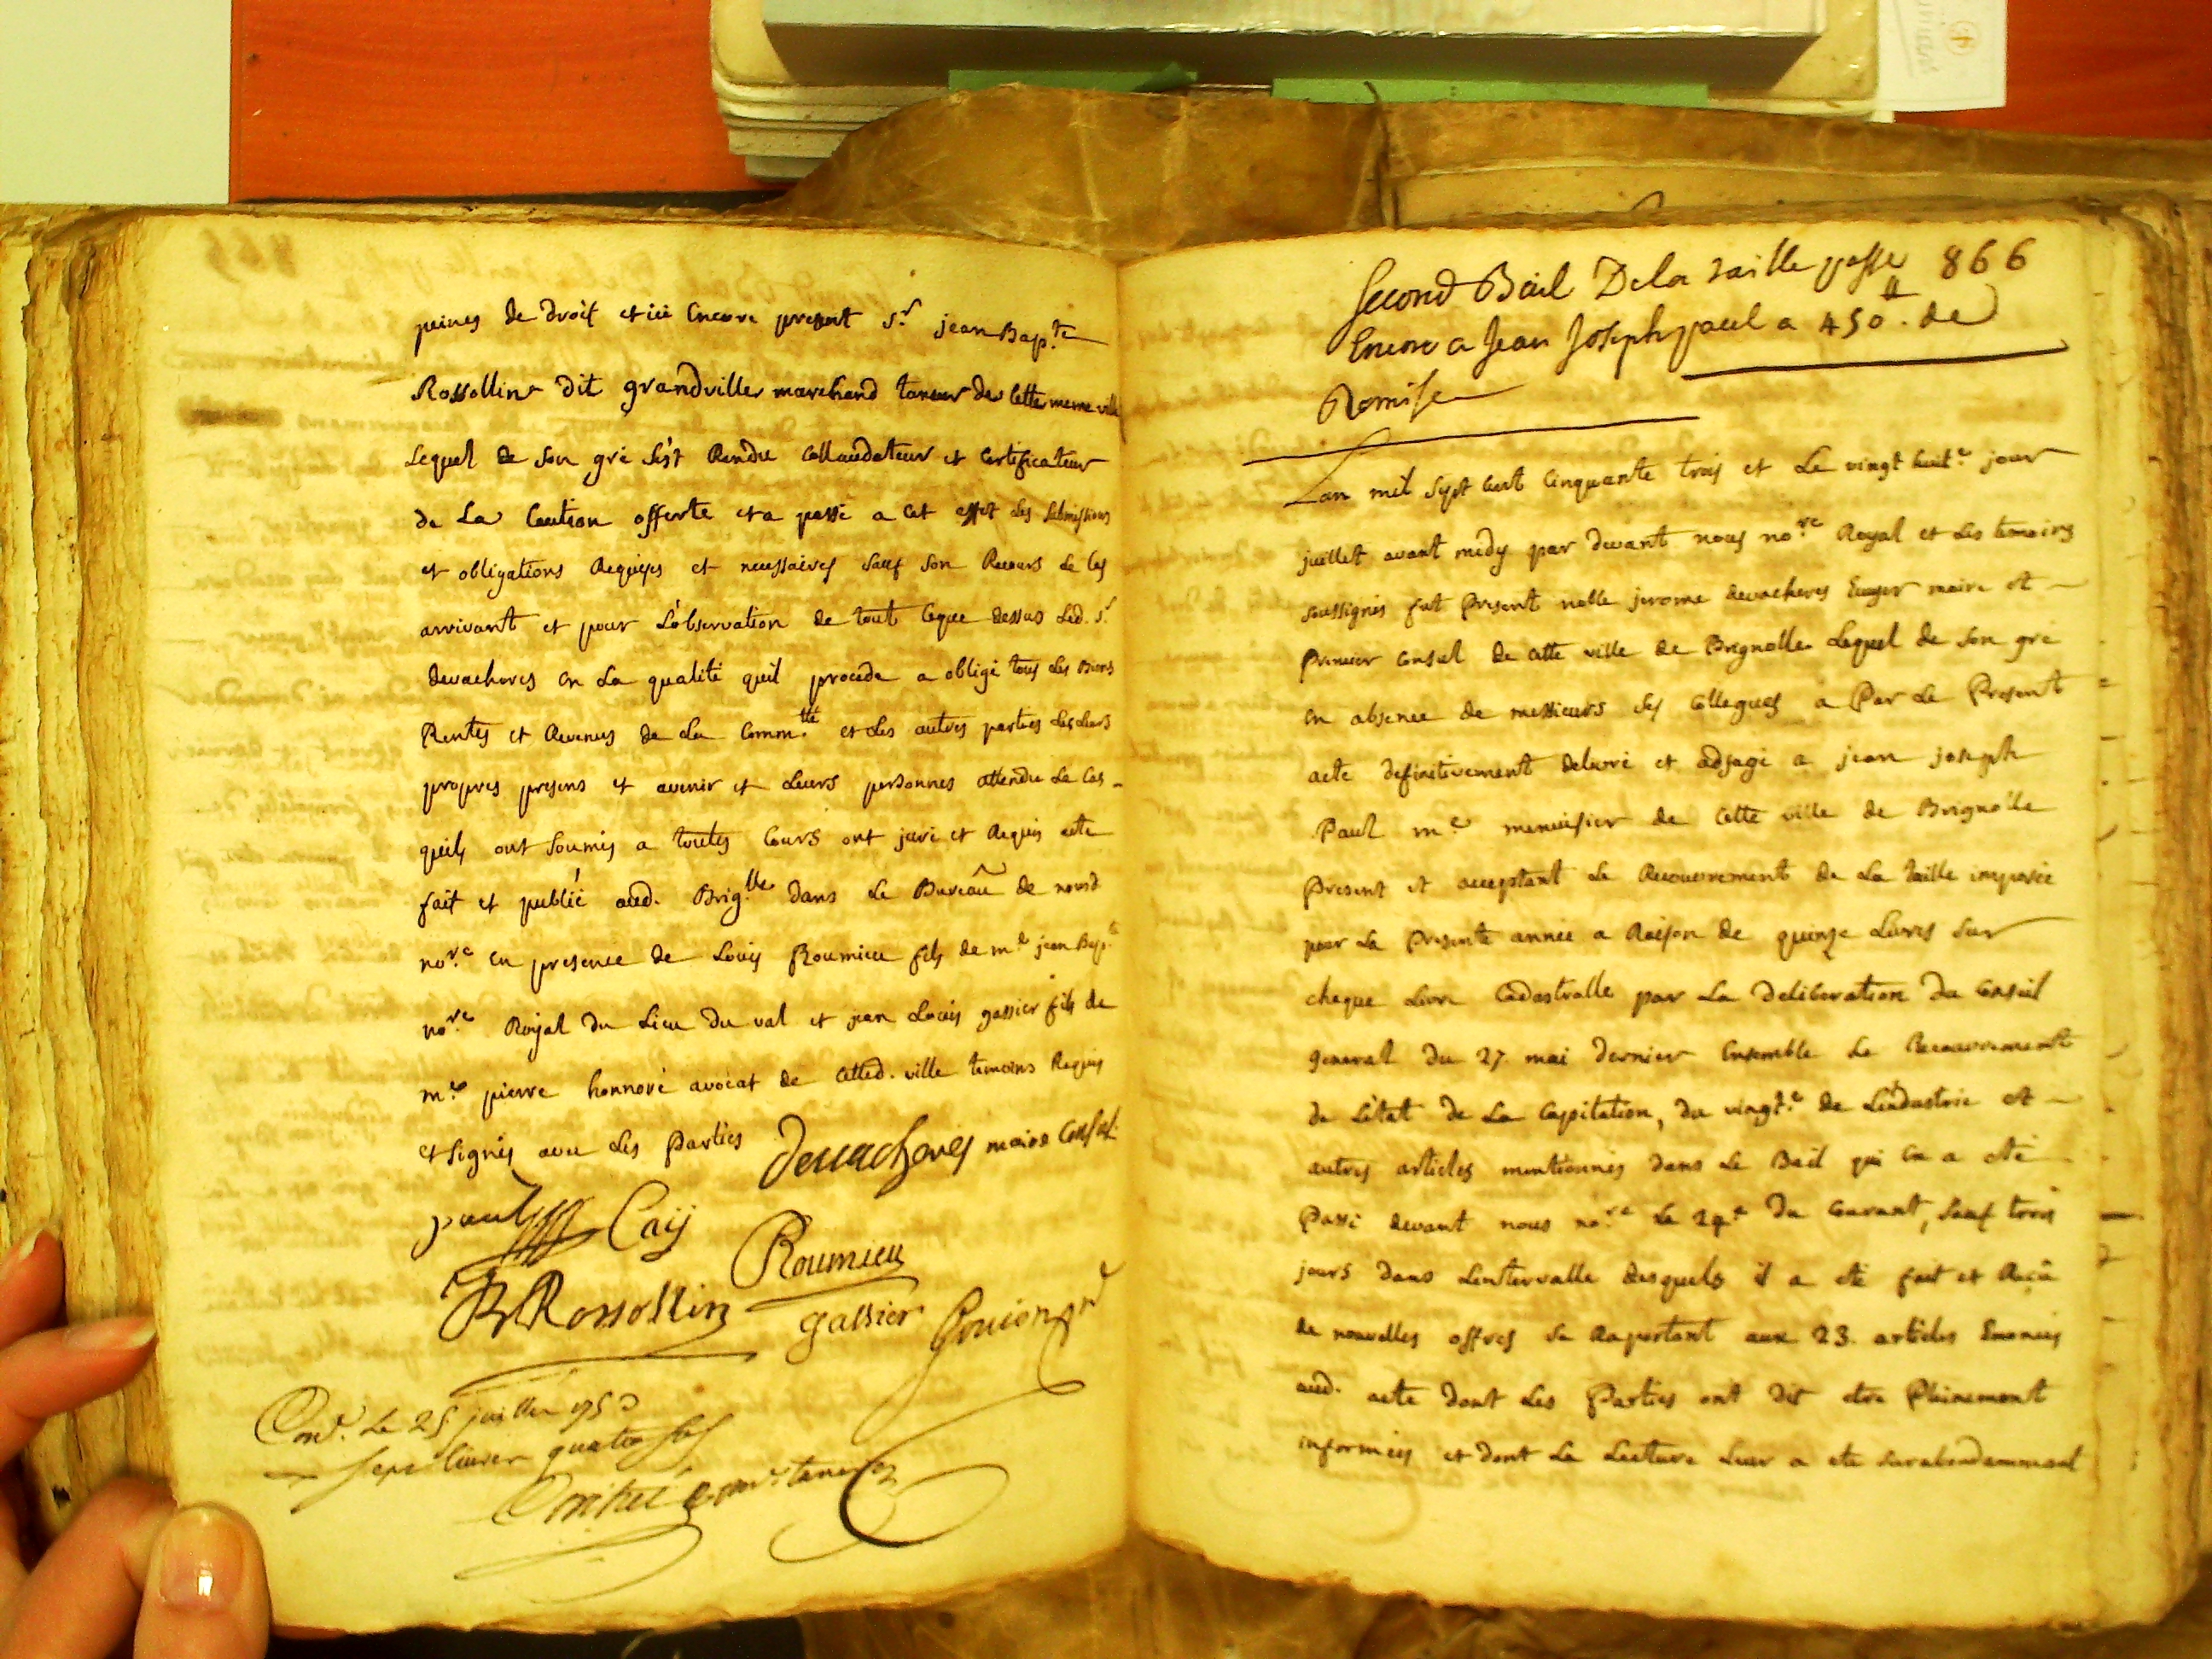 peines de droit et ici Encore present Sr. jean Bapte.
Rossollin dit grandville marchand taneur de Cette meme ville
Lequel de Son gré S'est Rendu Collaudateur et Certificateur
de La Caution offerte et a passé a Cet effet Les Submissions
et obligations Requises et necessaires Sauf Son Recours Le Cas
arrivant et pour L'observation de tout Ceque dessus Led. Sr.
devacheres En La qualité quil procede a obligé tous Les Biens
Rentes et Revenus de La Commté. et Les autres parties Les Leurs
propres presens et avenir et Leurs personnes attendu Le Cas
quils ont Soumis a toutes Cours ont juré et Requis acte
fait et publié aud. Griglle. dans Le Bureau de nousd
nore. En presence de Louis Roumieu fils de me. jean Bapte.
nore. Royal du Lieu du val et jean Louis gassier fils de
me. pierre honnoré avocat de Cetted. ville temoins Requis
et Signés avec Les Parties Devacheres maire Consul
paul Caij
Roumieu
Rossollin
gassier
Conl. Le 25 juillet 1753
sept livres quatre sols
866
Second Bail De la taille passé
Encore a Jean Joseph paul a 450 ₶. de
Remise
Lan mil Sept Cent Cinquante trois et Le vingt huite. jour
juillet avant midy par devant nous nore. Royal et Les temoins
soussignés fut Present noble jerome devacheres Ecuyer maire et
Premier Consul de Cette ville de Brignolle Lequel de Son gré
En absence de messieurs Ses Collegues a Par Le Present
acte definitivement delivré et adjugé a jean joseph
Paul me. menuisier de Cette ville de Brignolle
Present et acceptant Le Recouvrement de La taille imposée
pour La Presente année a Raison de quinze Livres Sur
cheque Livre Cadastralle par La Deliberation du Conseil
General du 27. mai dernier Ensemble Le Recouvrement
de L'état de La Capitation, du vingte. de L'industrie et
autres articles mentionnés dans Le Bail qui En a été
Passé devant nous nore. Le 24e. du Courant, Sauf trois
jours dans L'entervalle desquels il a eté fait et Reçû
de nouvelles offres Se Raportant aux 23. articles Enoncés
aud. acte dont Les Parties ont dit etre Pleinement
informées et dont La Lecture Leur a eté Surabondamment